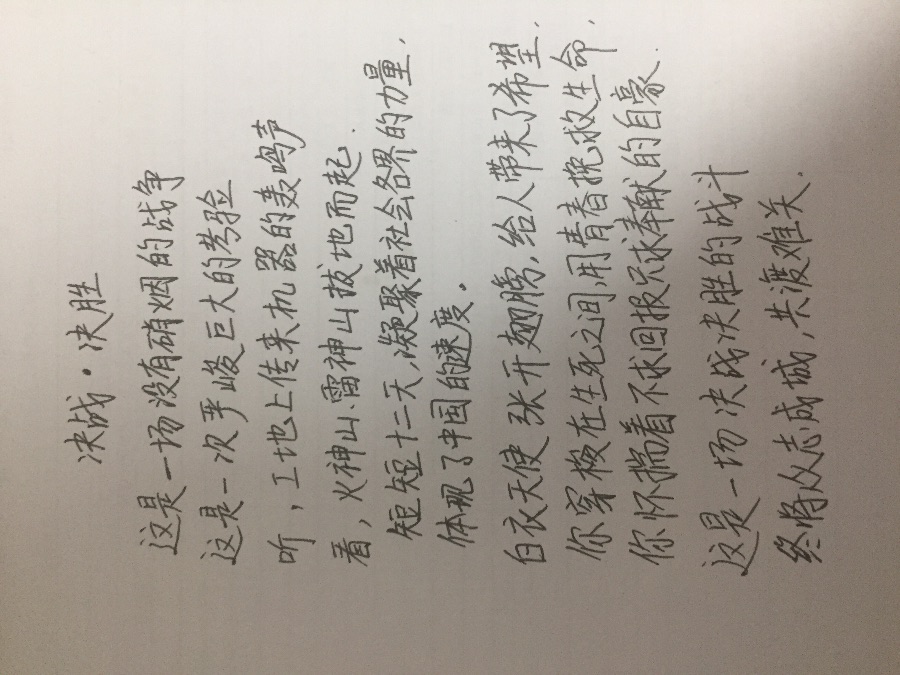 决战·决胜
这是一场没有硝烟的战争
这是一次严峻巨大的考验
听，工地上传来机器的轰鸣声
看，火神山、雷神山拔地而起.
短短十二天，凝聚着社会各界的力量，
体现了中国的速度。
白衣天使张开翅膀，给人带来了希望，
你穿梭在生死之间，用青春挽救生命，
你怀揣着不求回报只求奉献的自豪.
这是一场决战决胜的战斗
终将众志成城，共渡难关.